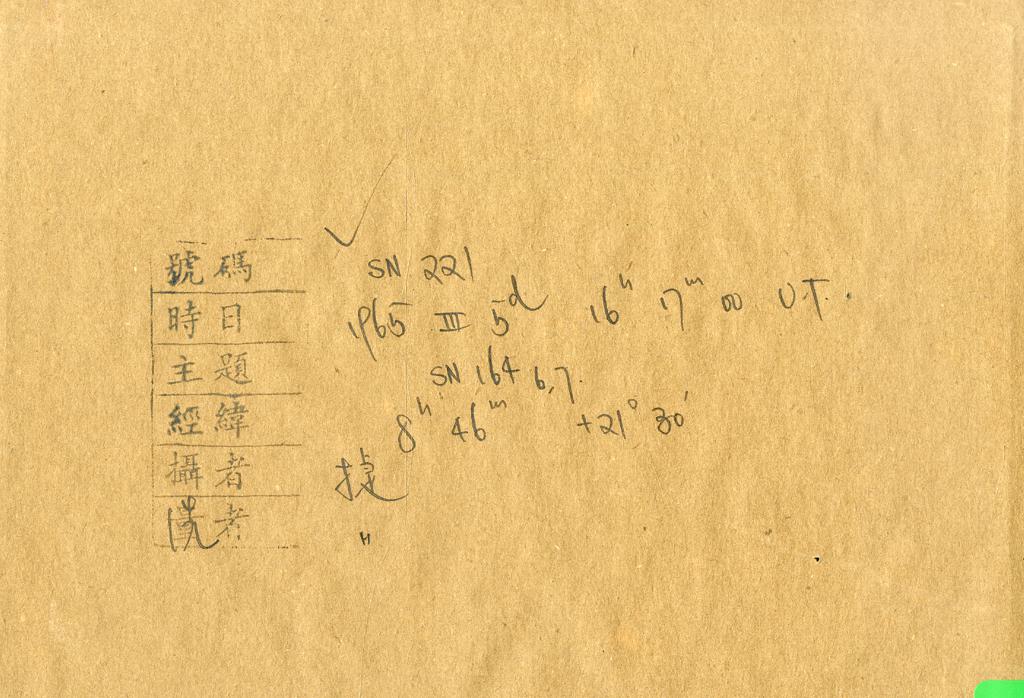 號碼 SN 221
時日 1965 III 5d 16h 17m 00 U.T.
主題 SN 164 6,7.
經緯 8h 46m +21° 30'
攝者 捷
洗者 〃